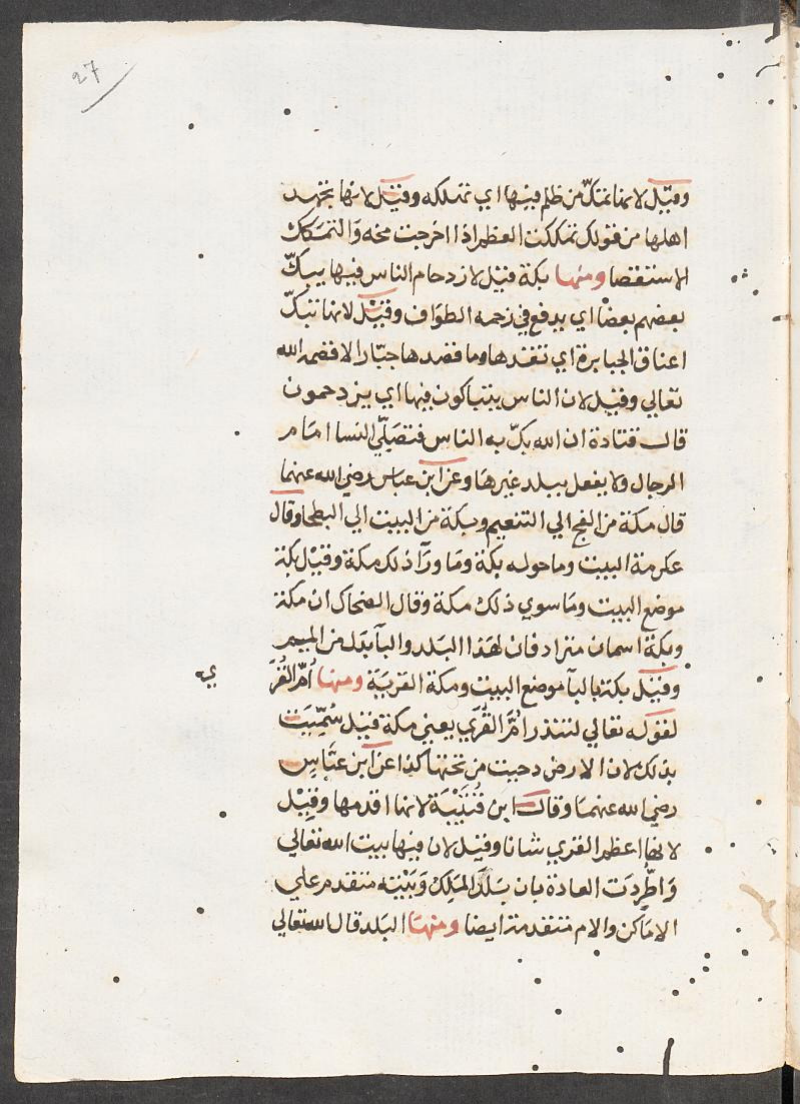 27
وقيل لانها تمكّ من ظلم فيها اي تهلكه وقيل لانها تجهد
اهلها من قولك تمككت العظم اذا اخرجت مخه والتمكك
الاستقصا ومنها بكة قيل لازدحام الناس فيها يبكّ
بعضهم بعضا اي يدفع في زحمه الطواف وقيل لانها تبكّ
اعناق الجبابرة اي تقدها وما قصدها جبّار الا قصمه الله
تعالي وقيل لان الناس يتباكون فيها اي يزدحمون
قال قتادة ان الله بكّ به الناس فتصلّي النسا امام
الرجال ولا يفعل ببلد غيرها وعن ابن عباس رضي الله عنهما
قال مكة من الفج الي التنعيم وبكة من البيت الي البطحا وقال
عكرمة البيت وما حوله بكة وما ورآ ذلك مكة وقيل بكة
موضع البيت وما سوي ذلك مكة وقال الضحاك ان مكة
وبكة اسمان مترادفان لهذا البلد والبآ بدل من الميم
وقيل بكة بالبآ موضع البيت ومكة القرية ومنها اُمّ القُرَ
ي
لقوله تعالي لتنذر امّ القُرَي يعني مكة قيل سُمّيت
بذلك لان الارض دحيت من تحتها كذا عن ابن عبّاس
رضي الله عنهما وقال ابن قُتَيْبَة لانها اقدمها وقيل
لانها اعظم القري شانا وقيل لان فيها بيت الله تعالي
وَاطّردَت العادة بان بَلَدَ المَلِك وَبَيْته متقدم علي
الاماكن والام متقدمة ايضا ومنها البَلد قال الله تعالي